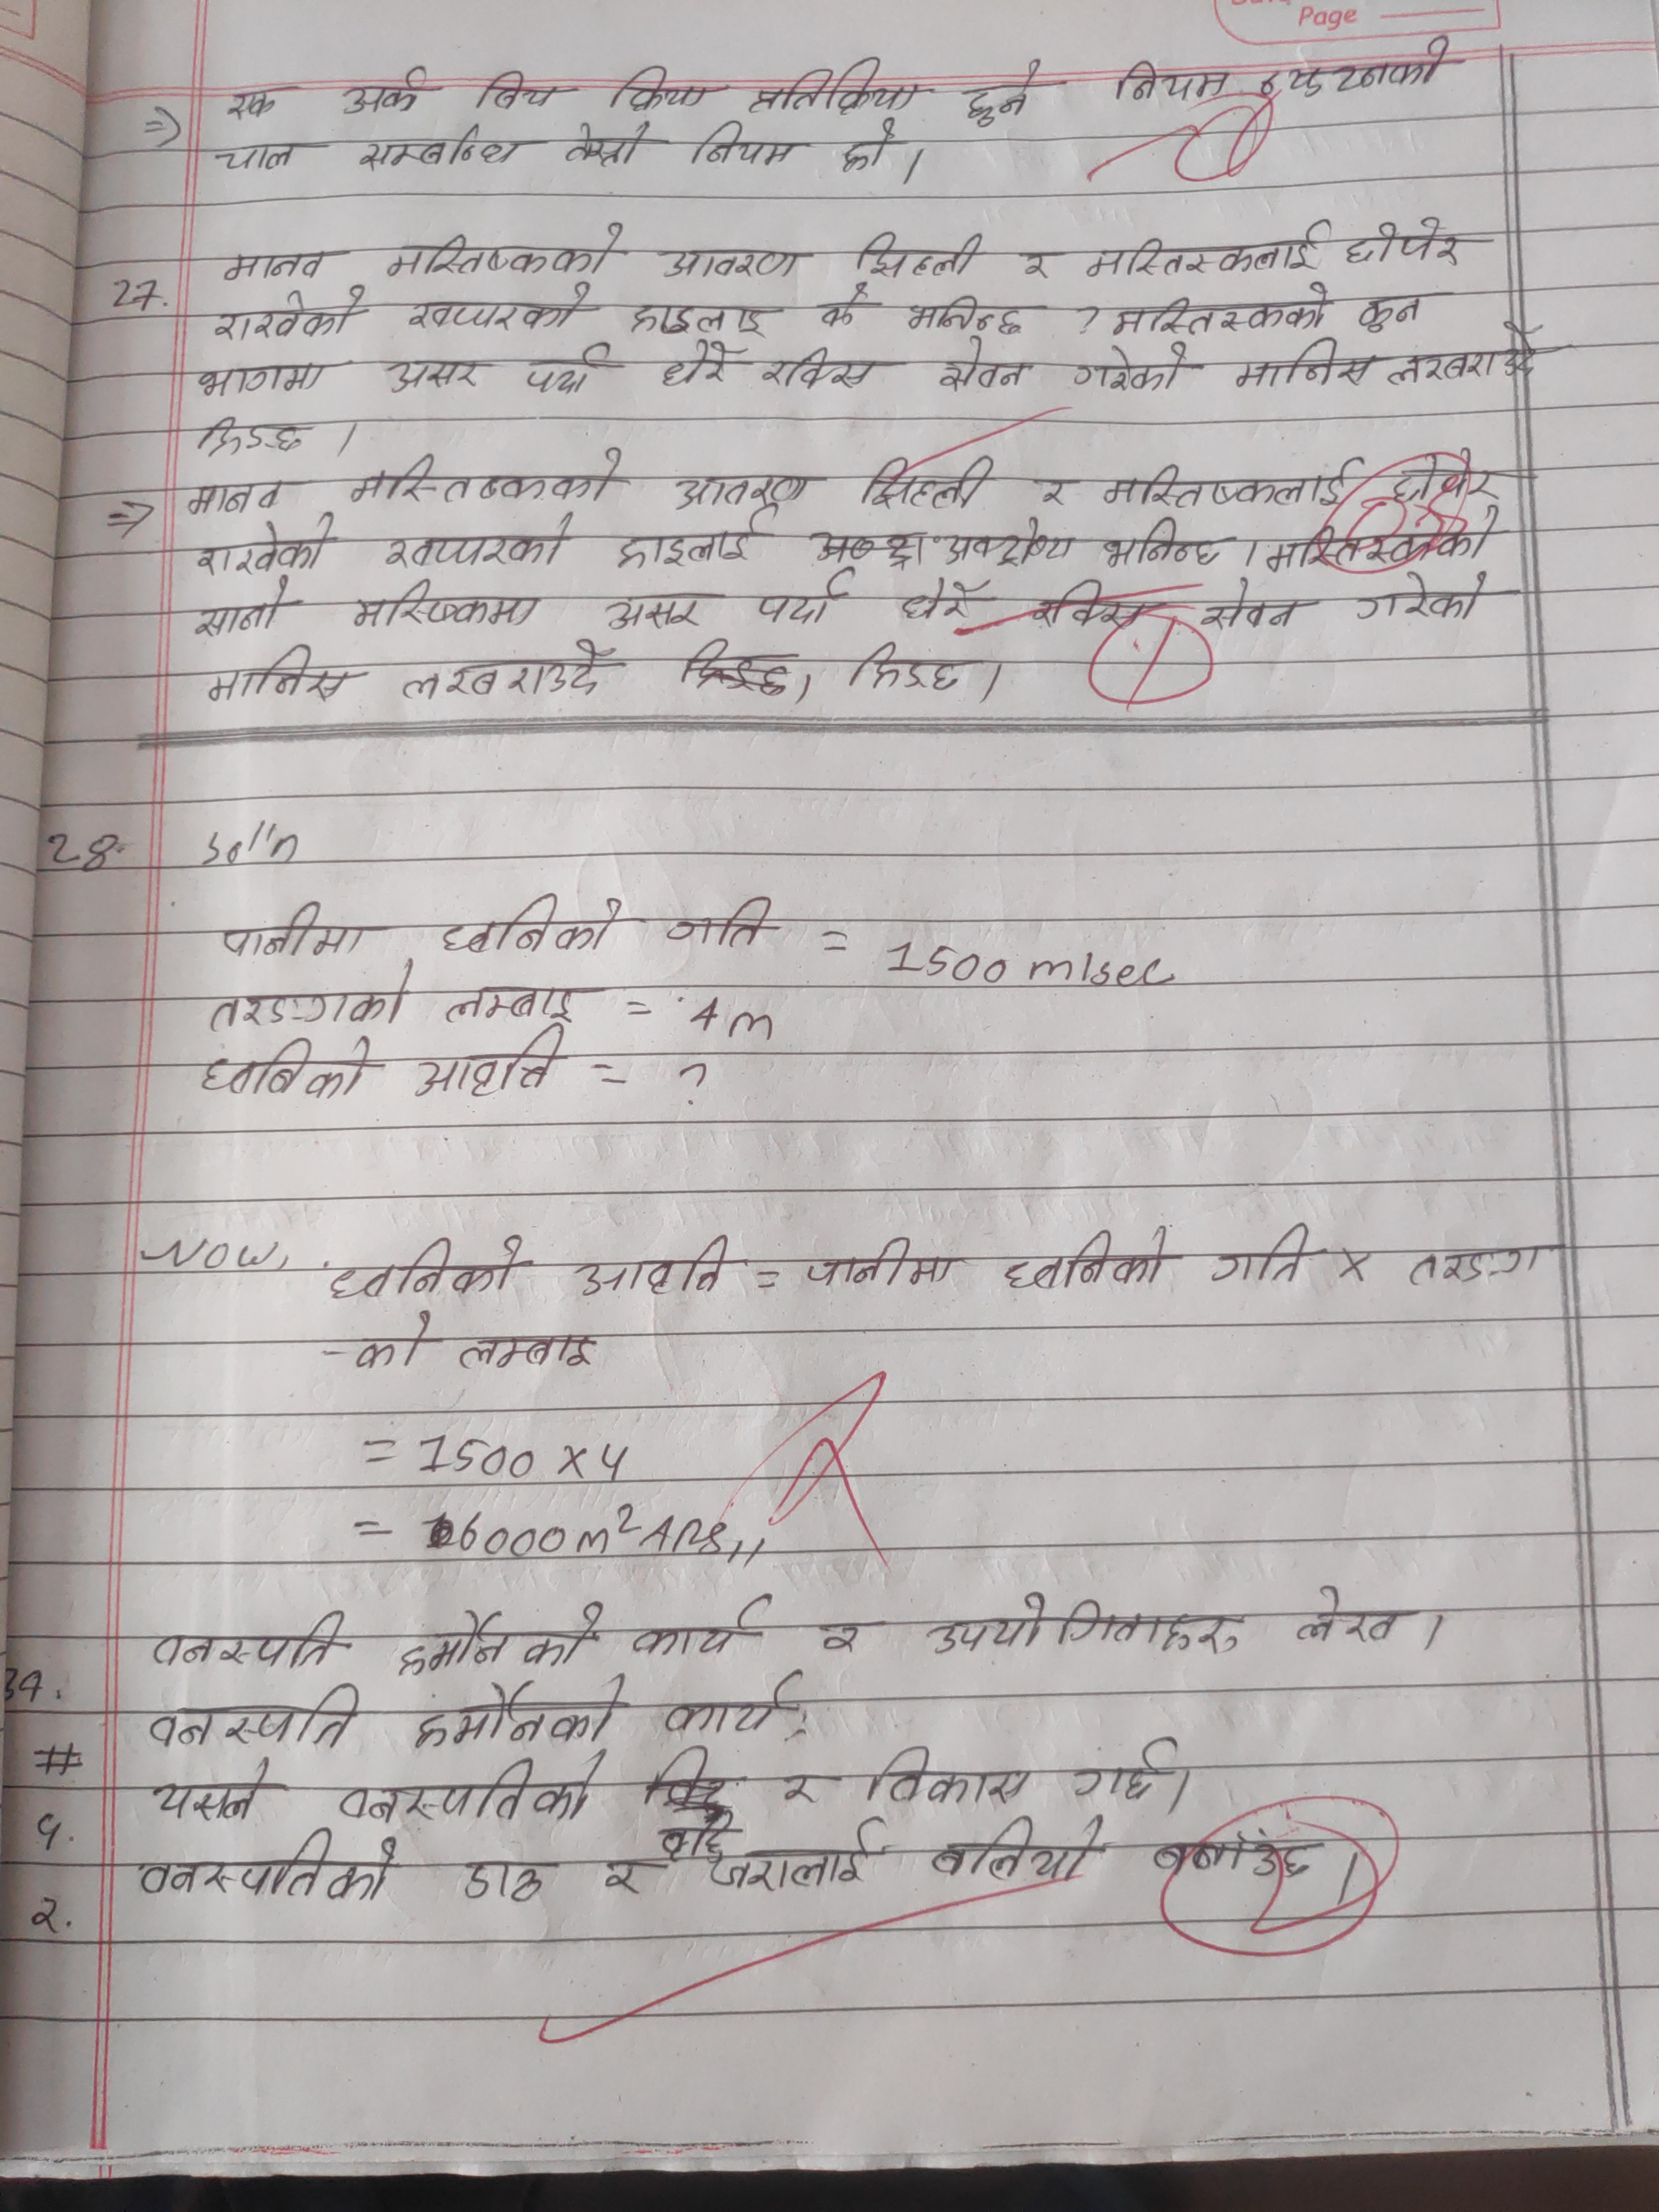 Page
⇒ एक अर्क बिच क्रिया प्रतिक्रिया हुने नियम न्युटनको
चाल सम्बन्धि तेस्रो नियम हो ।
27. मानव मस्तिष्कको आवरण झिल्ली र मस्तिस्कलाई छोपेर
राखेको खप्परको हाडलाइ के भनिन्छ ? मस्तिस्कको कुन
भागमा असर पर्या धेरै रक्सि सेवन गरेको मानिस लरखराउदै
हिडछ ।
⇒ मानव मस्तिष्कको आवरण झिल्ली र मस्तिष्कलाई छोपेर
राखेको खप्परको हाडलाई भनिन्छ । मस्तिस्कको
सानो मस्ष्किमा असर पर्या धेरै रक्सि सेवन गरेको
मानिस लरखराउदै हिडछ, हिडछ ।
28. sol'n
पानीमा ध्वनिको गति = 1500 m/sec
तरङगको लम्बाइ = 4 m
ध्वनिको आवृति = ?
Now, ध्वनिको आवृति = पानीमा ध्वनिको गति × तरङग
-को लम्बाइ
= 1500 × 4
= 6000 m² Ans,,
34. वनस्पति हर्मोनको कार्य र उपयोगिताहरु लेख ।
# वनस्पति हर्मोनको कार्य :
१. यसले वनस्पतिको र विकास गर्छ ।
२. वनस्पतिको डाठ र जरालाई बलियो बनाउँछ ।